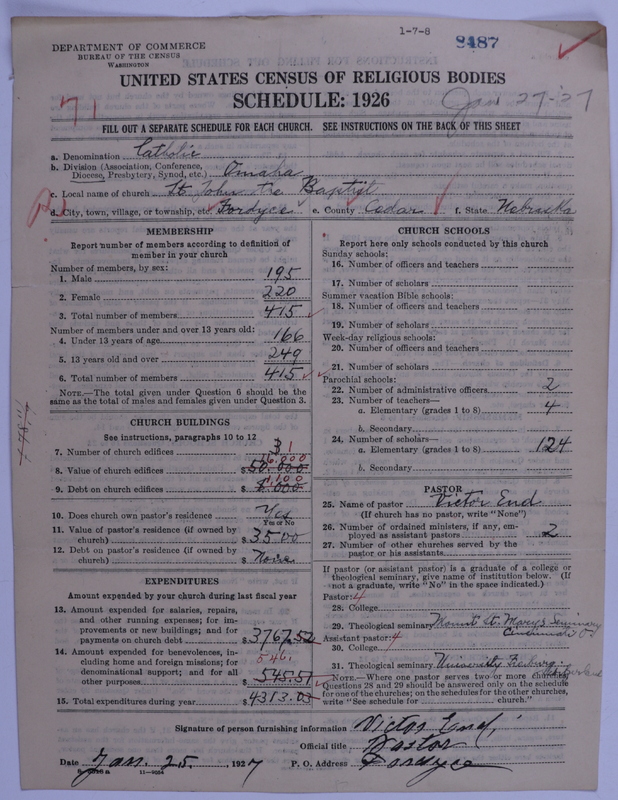 1-7-8
8487
DEPARTMENT OF COMMERCE
BUREAU OF THE CENSUS
WASHINGTON
UNITED STATES CENSUS OF RELIGIOUS BODIES
SCHEDULE: 1926
Jan 27-27
71
FILL OUT A SEPARATE SCHEDULE FOR EACH CHURCH. SEE INSTRUCTIONS ON THE BACK OF THIS SHEET
a. Denomination Catholic
b. Division (Association, Conference, Diocese, Presbytery, Synod, etc.) Omaha
c. Local name of church St. John the Baptist
d. City, town, village, or township, etc. Fordyce e. County Cedar f. State Nebraska
MEMBERSHIP
Report number of members according to definition of
member in your church
Number of members, by sex:
1. Male 195
2. Female 220
3. Total number of members 415
Number of members under and over 13 years old:
4. Under 13 years of age 166
5. 13 years old and over 249
6. Total number of members 415
NOTE.—The total given under Question 6 should be the
same as the total of males and females given under Question 3.
CHURCH BUILDINGS
See instructions, paragraphs 10 to 12
7. Number of church edifices 3 1
8. Value of church edifices $ 50.000
9. Debt on church edifices $ 1.000 1,100
10. Does church own pastor's residence Yes
Yes or No
11. Value of pastor's residence (if owned by
church) $ 3500
12. Debt on pastor's residence (if owned by
church) $ None
EXPENDITURES
Amount expended by your church during last fiscal year
13. Amount expended for salaries, repairs,
and other running expenses; for im-
provements or new buildings; and for
payments on church debt $ 3767.52
14. Amount expended for benevolences, in-
cluding home and foreign missions; for
denominational support; and for all
other purposes 546. $ 545.51
15. Total expenditures during year $ 4313.03
CHURCH SCHOOLS
Report here only schools conducted by this church
Sunday schools:
16. Number of officers and teachers
17. Number of scholars
Summer vacation Bible schools:
18. Number of officers and teachers
19. Number of scholars
Week-day religious schools:
20. Number of officers and teachers
21. Number of scholars
Parochial schools:
22. Number of administrative officers 2
23. Number of teachers—
a. Elementary (grades 1 to 8) 4
b. Secondary
24. Number of scholars—
a. Elementary (grades 1 to 8) 124
b. Secondary
PASTOR
25. Name of pastor Victor End
(If church has no pastor, write "None")
26. Number of ordained ministers, if any, em-
ployed as assistant pastors 2
27. Number of other churches served by the
pastor or his assistants
If pastor (or assistant pastor) is a graduate of a college or
theological seminary, give name of institution below. (If
not a graduate, write "No" in the space indicated.)
Pastor: 4
28. College
29. Theological seminary Mount St. Mary's Seminary
Cincinnati O
Assistant pastor: 4
30. College
31. Theological seminary University Freiburg
NOTE.—Where one pastor serves two or more churches,
Questions 28 and 29 should be answered only on the schedule
for one of the churches; on the schedules for the other churches,
write "See schedule for church."
Signature of person furnishing information Victor End,
Official title Pastor
Date Jan. 25, 1927 P. O. Address Fordyce
11-9054